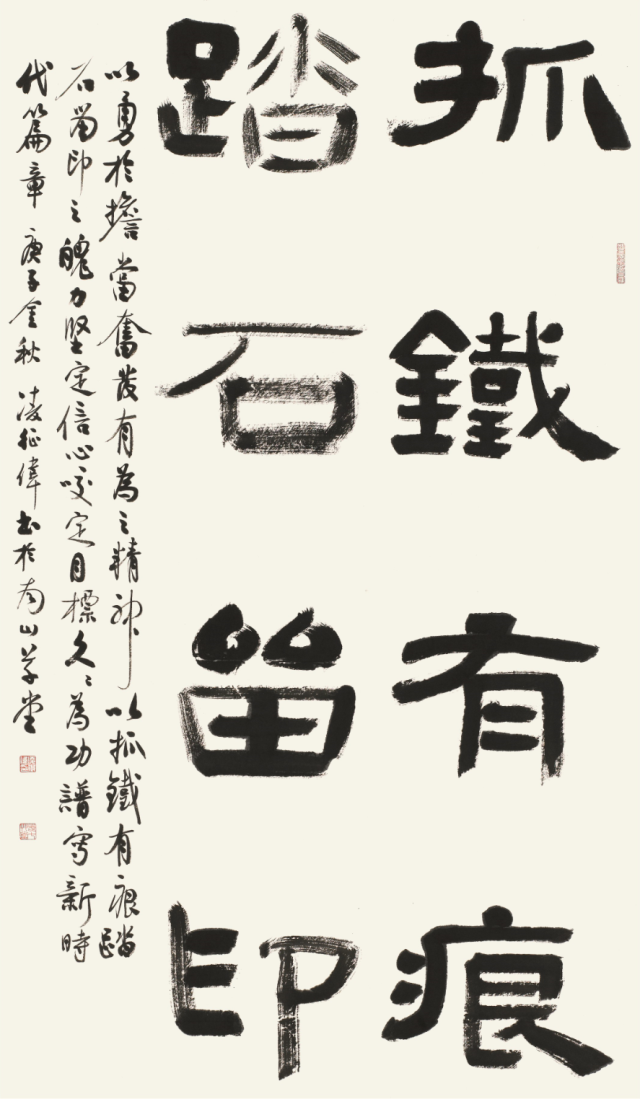 抓鐵有痕
踏石留印
以勇於擔當奮發有為之精神以抓鐵有痕踏
石留印之魄力堅定信心咬定目標久久為功譜寫新時
代篇章庚子金秋凌征偉書於南山草堂